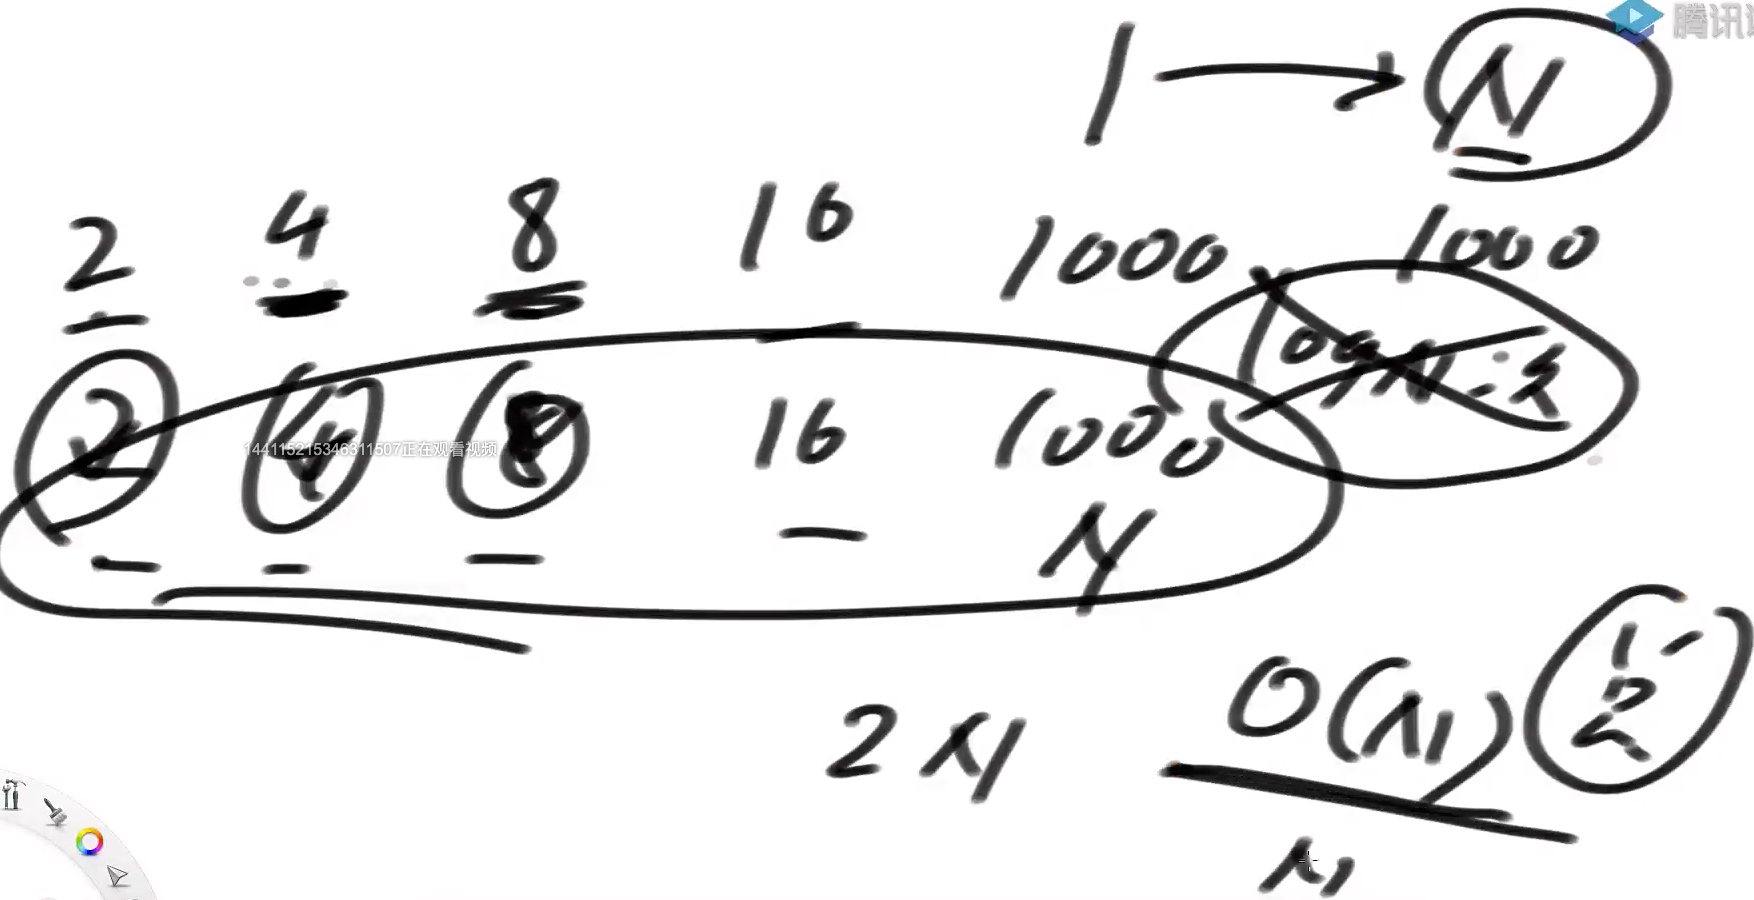 腾讯
1 → N
2 4 8 16 1000 1000
logN
2 4 8 16 1000
144115215346311507正在观看视频
N
O(N)
1
2
2N
N